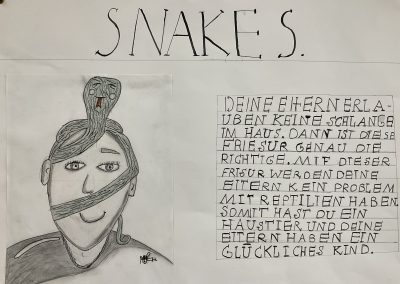 SNAKES.
DEINE ELTERN ERLA-
UBEN KEINE SCHLANGE
IM HAUS. DANN IST DIESE
FRIESUR GENAU DIE
RICHTIGE. MIT DIESER
FRISUR WERDEN DEINE
ELTERN KEIN PROBLEM
MIT REPTILIEN HABEN.
SOMIT HAST DU EIN
HAUSTIER UND DEINE
ELTERN HABEN EIN
GLÜCKLICHES KIND.